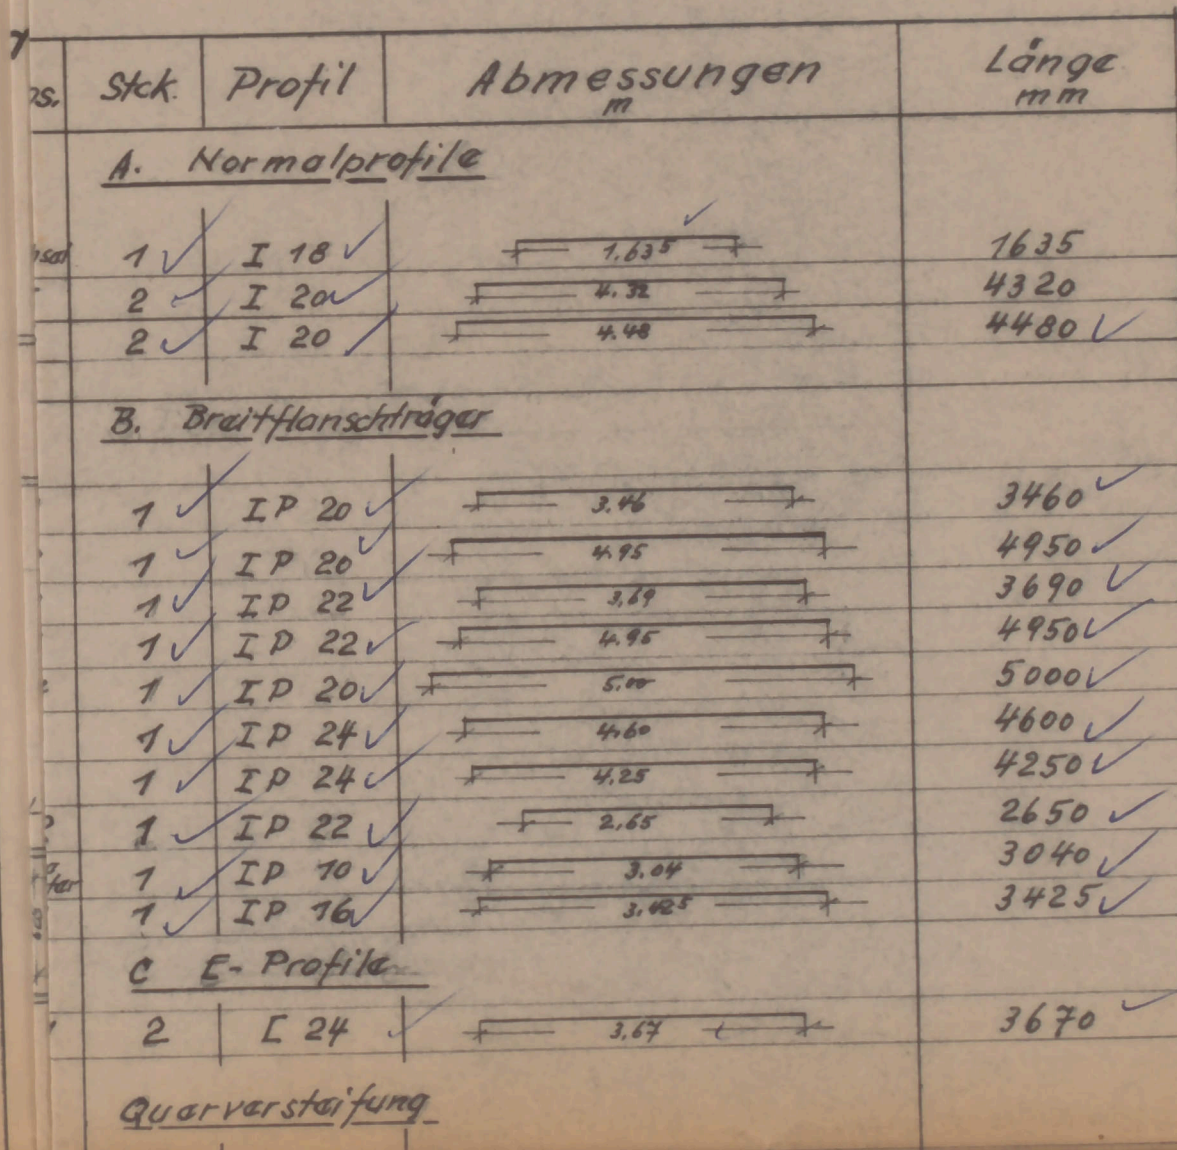 os. Stck. Profil Abmessungen Länge
m mm
A. Normalprofile
1 I 18 1.635 1635
2 I 20 4.32 4320
2 I 20 4.48 4480
B. Breitflanschträger
1 IP 20 3.46 3460
1 IP 20 4.95 4950
1 IP 22 3,69 3690
1 IP 22 4.95 4950
1 IP 20 5.00 5000
1 IP 24 4.60 4600
1 IP 24 4.25 4250
1 IP 22 2,65 2650
1 IP 10 3.04 3040
1 IP 16 3.425 3425
C E-Profile
2 [ 24 3,67 3670
Querversteifung